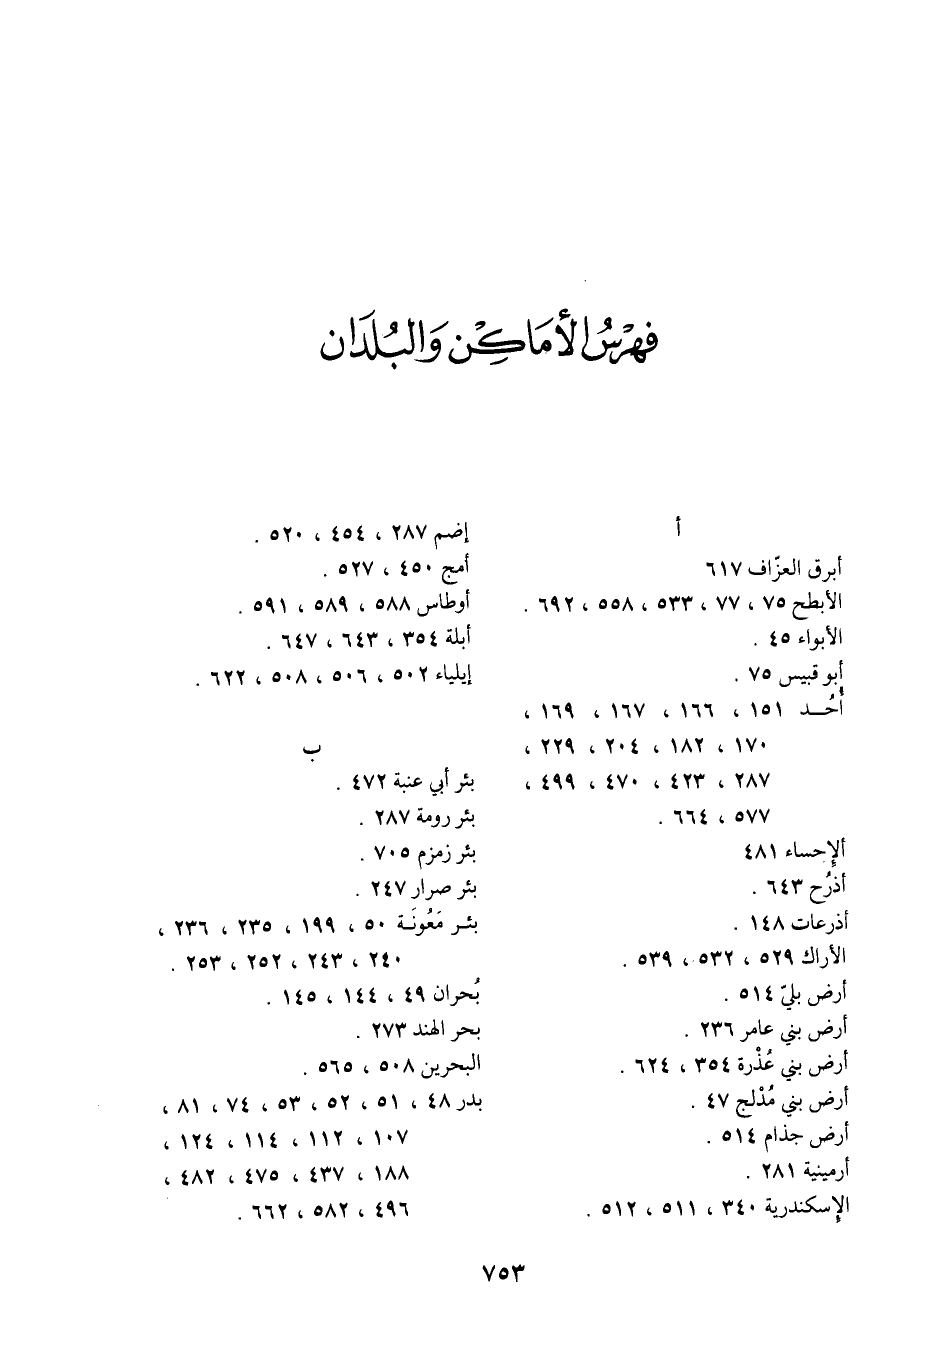 فهرس الأماكن والبلدان
أ
أبرق العزّاف ٦١٧
الأبطح ٧٥ ، ٧٧ ، ٥٣٣ ، ٥٥٨ ، ٦٩٢ .
الأبواء ٤٥ .
أبو قبيس ٧٥ .
أُحُد ١٥١ ، ١٦٦ ، ١٦٧ ، ١٦٩ ،
١٧٠ ، ١٨٢ ، ٢٠٤ ، ٢٢٩ ،
٢٨٧ ، ٤٢٣ ، ٤٧٠ ، ٤٩٩ ،
٥٧٧ ، ٦٦٤ .
ألإِحساء ٤٨١
أذرُح ٦٤٣ .
أذرعات ١٤٨ .
الأراك ٥٢٩ ، ٥٣٢ ، ٥٣٩ .
أرض بليّ ٥١٤ .
أرض بني عامر ٢٣٦ .
أرض بني عُذْرة ٣٥٤ ، ٦٢٤ .
أرض بني مُدْلج ٤٧ .
أرض جذام ٥١٤ .
أرمينية ٢٨١ .
الإِسكندرية ٣٤٠ ، ٥١١ ، ٥١٢ .
إضم ٢٨٧ ، ٤٥٤ ، ٥٢٠ .
أمج ٤٥٠ ، ٥٢٧ .
أوطاس ٥٨٨ ، ٥٨٩ ، ٥٩١ .
أبلة ٣٥٤ ، ٦٤٣ ، ٦٤٧ .
إيلياء ٥٠٢ ، ٥٠٦ ، ٥٠٨ ، ٦٢٢ .
ب
بئر أبي عنبة ٤٧٢ .
بئر رومة ٢٨٧ .
بئر زمزم ٧٠٥ .
بئر صرار ٢٤٧ .
بئر مَعُونَة ٥٠ ، ١٩٩ ، ٢٣٥ ، ٢٣٦ ،
٢٤٠ ، ٢٤٣ ، ٢٥٢ ، ٢٥٣ .
بُحران ٤٩ ، ١٤٤ ، ١٤٥ .
بحر الهند ٢٧٣ .
البحرين ٥٠٨ ، ٥٦٥ .
بدر ٤٨ ، ٥١ ، ٥٢ ، ٥٣ ، ٧٤ ، ٨١ ،
١٠٧ ، ١١٢ ، ١١٤ ، ١٢٤ ،
١٨٨ ، ٤٣٧ ، ٤٧٥ ، ٤٨٢ ،
٤٩٦ ، ٥٨٢ ، ٦٦٢ .
٧٥٣